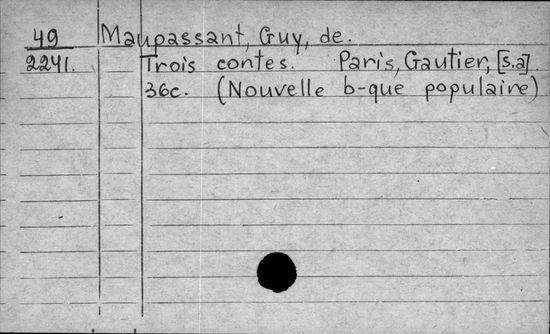 49 Maupassant, Guy, de.
2241. Trois contes. Paris, Gautier, [s.a].
36c. (Nouvelle b-que populaire)